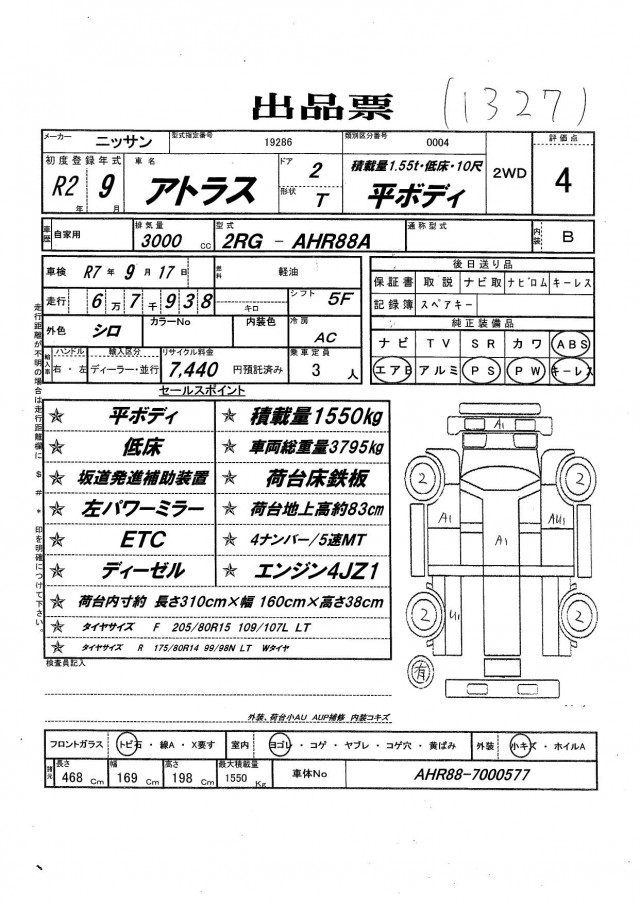 出品票 (1327)
メーカー ニッサン 型式指定番号 19286 類別区分番号 0004 2WD 評価点 4
初度登録年式 R2 年 9 月 車名 アトラス ドア 2 形状 T 積載量1.55t・低床・10尺 平ボディ
車歴 自家用 排気量 3000 cc 型式 2RG - AHR88A 通称型式 内装 B
車検 R7 年 9 月 17 日 燃料 軽油
走行 6 万 7 千 9 3 8 キロ シフト 5F
外色 シロ カラーNo 内装色 冷房 AC
輸入車 ハンドル 右・左 輸入区分 ディーラー・並行 リサイクル料金 7,440 円預託済み 乗車定員 3 人
後日送り品
保証書 取説 ナビ取 ナビロム キーレス
記録簿 スペアキー
純正装備品
ナビ TV SR カワ ABS
エアB アルミ PS PW キーレス
走行距離が不明の場合は走行距離欄に $ # * 印を明確につけて下さい。
セールスポイント
☆ 平ボディ ☆ 積載量1550kg
☆ 低床 ☆ 車両総重量3795kg
☆ 坂道発進補助装置 ☆ 荷台床鉄板
☆ 左パワーミラー ☆ 荷台地上高約83cm
☆ ETC ☆ 4ナンバー/5速MT
☆ ディーゼル ☆ エンジン4JZ1
☆ 荷台内寸約 長さ310cm×幅 160cm×高さ38cm
☆ タイヤサイズ F 205/80R15 109/107L LT
☆ タイヤサイズ R 175/80R14 99/98N LT Wタイヤ
A1
2 2
A1 A1 AU1
2 U1 2
有
検査員記入
外装、荷台小AU AUP補修 内装コキズ
フロントガラス トビ石・線A・X要す 室内 ヨゴレ・コゲ・ヤブレ・コゲ穴・黄ばみ 外装 小キズ・ホイルA
諸元 長さ 468 Cm 幅 169 Cm 高さ 198 Cm 最大積載量 1550 Kg 車体No AHR88-7000577